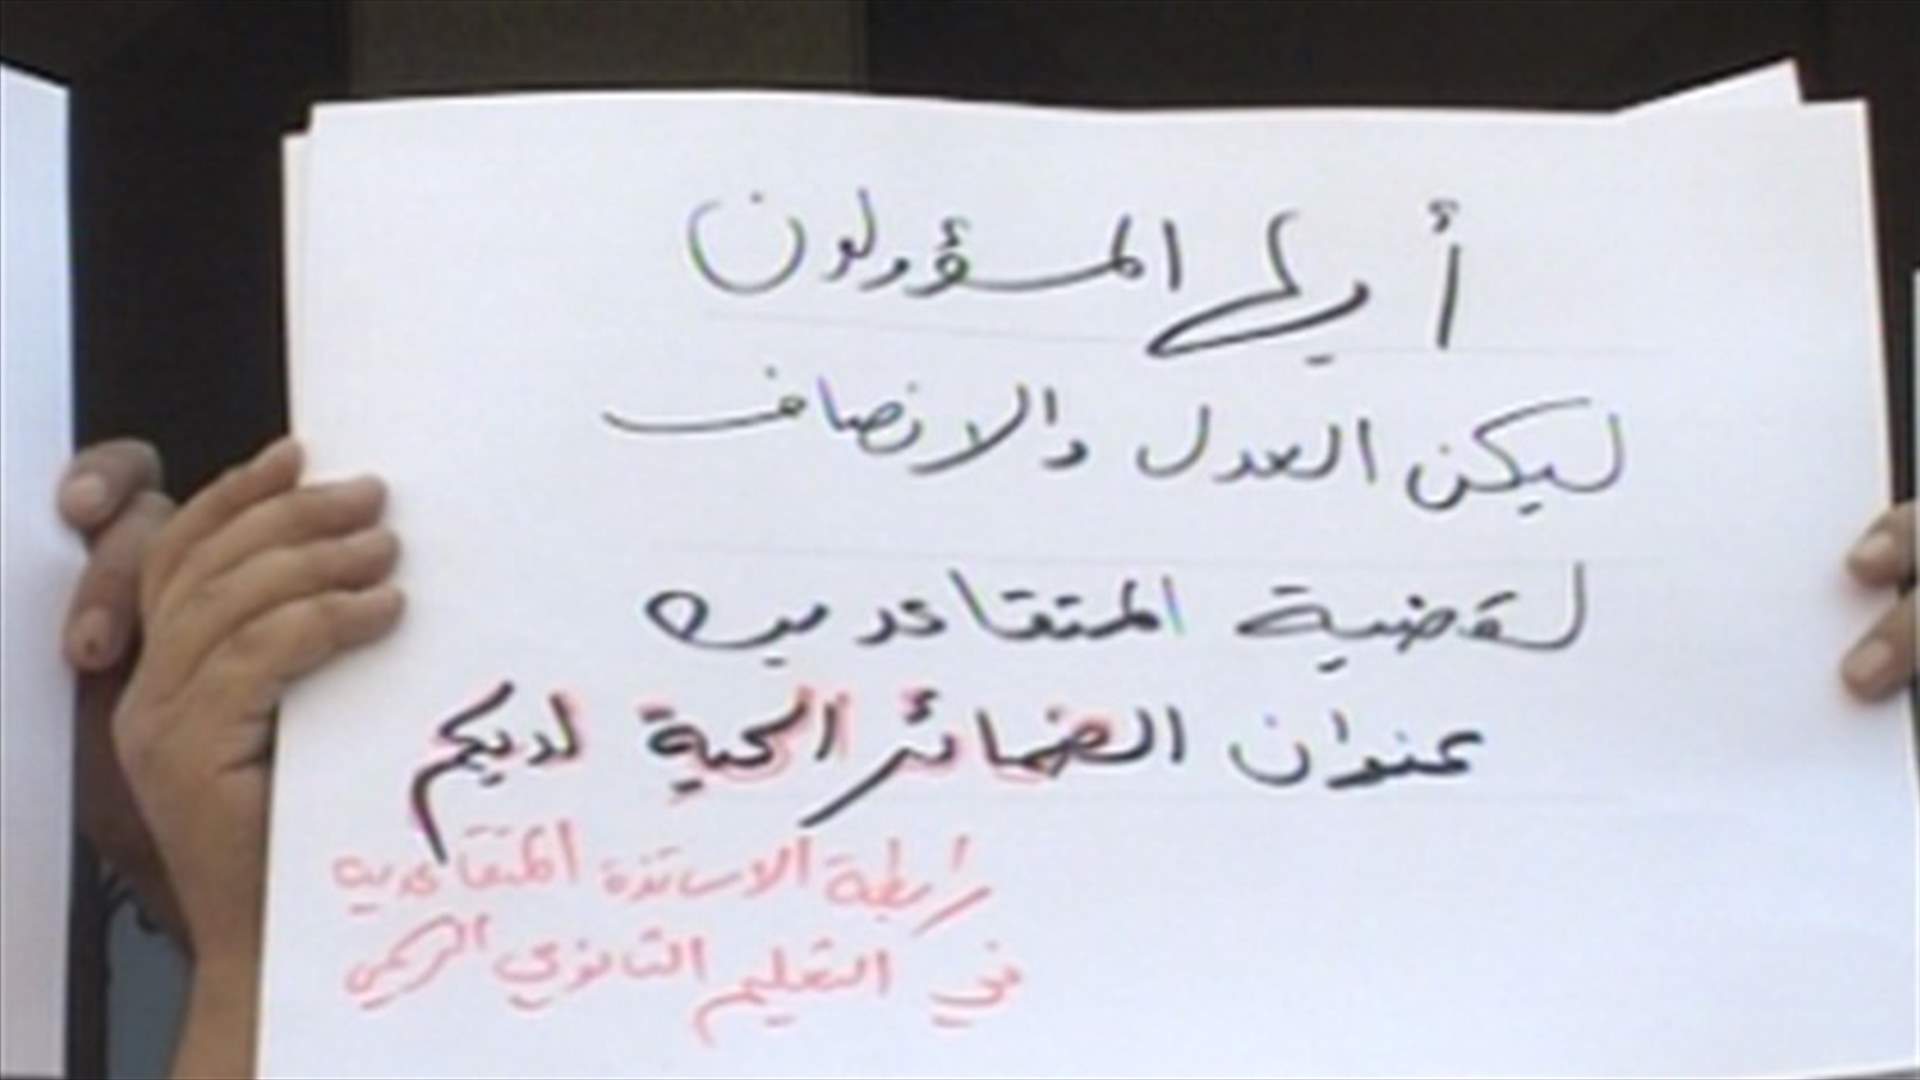 أيها المسؤولون
ليكن العدل والانصاف
لقضية المتقاعدين
عنوان الضمائر الحية لديكم
رابطة الاساتذة المتقاعدين
في التعليم الثانوي الرسمي